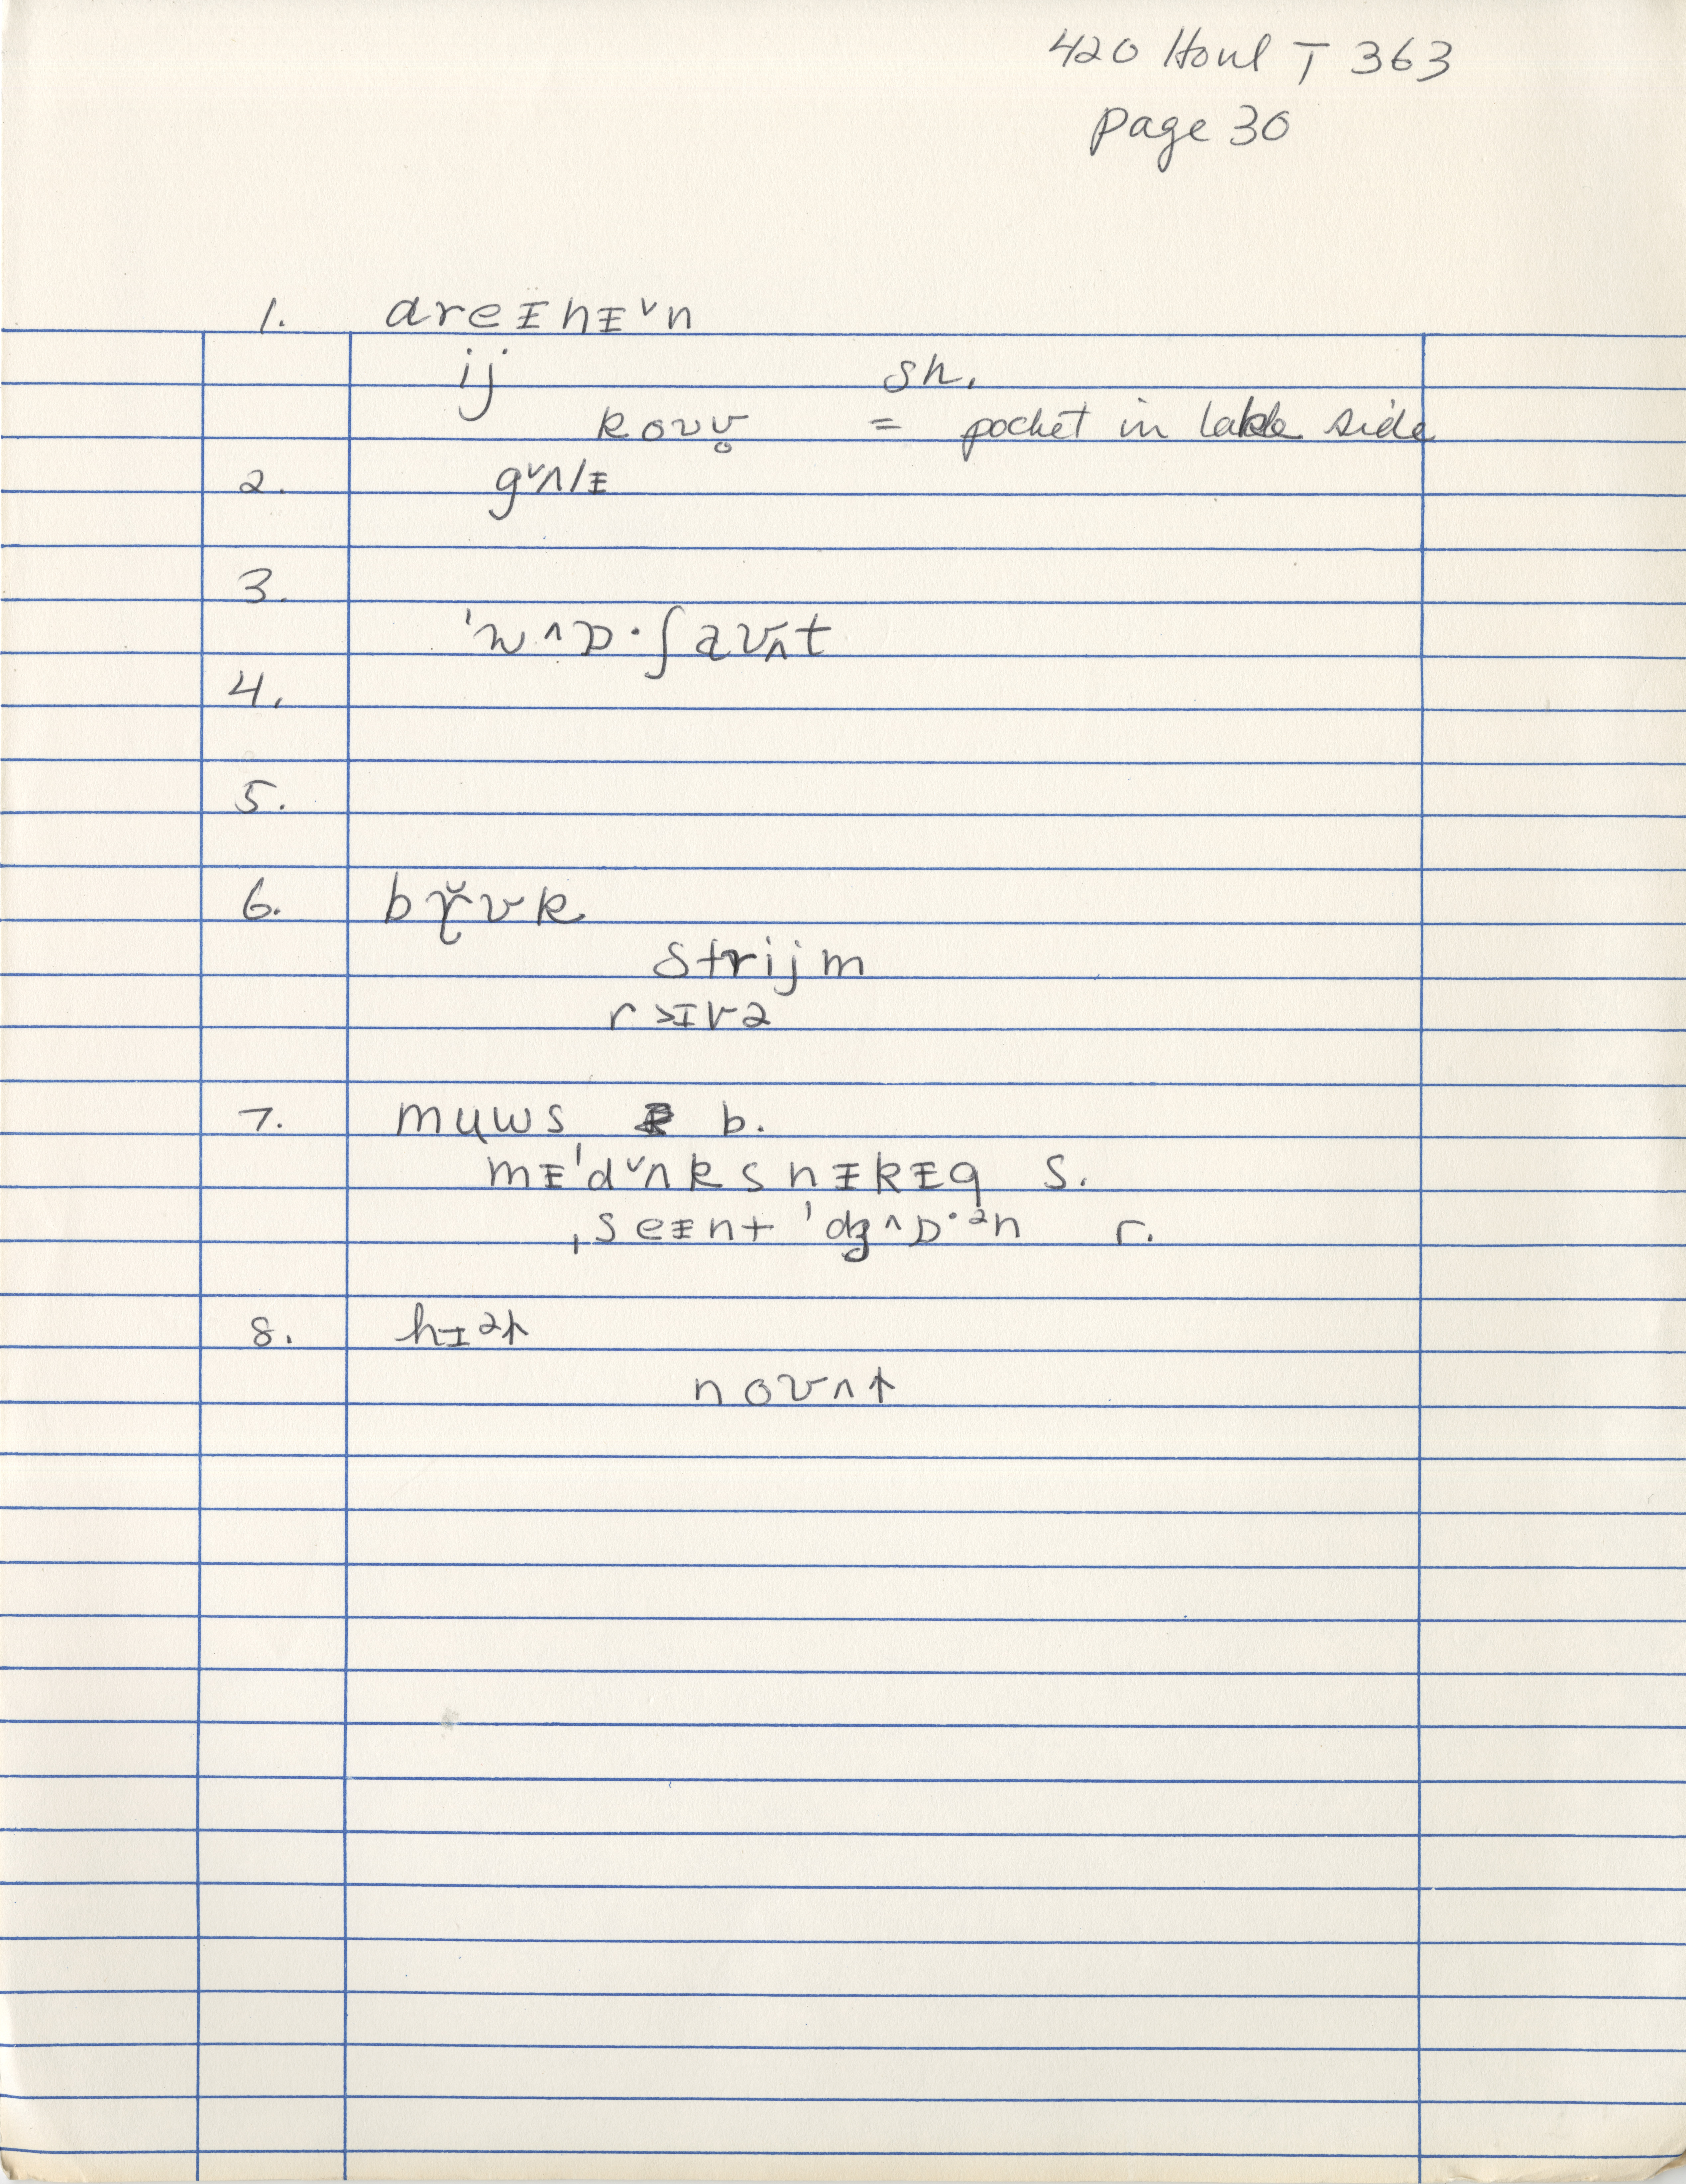 420 Houl T 363
page 30
1. dreᵻhᵻˇn
ij sh.
kovv̥ = pocket in lake side
2. gˇʌlᵻ
3.
'w^ɒ·ʃəvʌt
4.
5.
6. bɽ̌ʊk
strijm
r>ɪvə
7. muws b.
mᵻ'dˇʌksnᵻkᵻg s.
ˌseᵻnt 'dʒ^ɒ·ᵊn r.
8. hɪət
novʌt